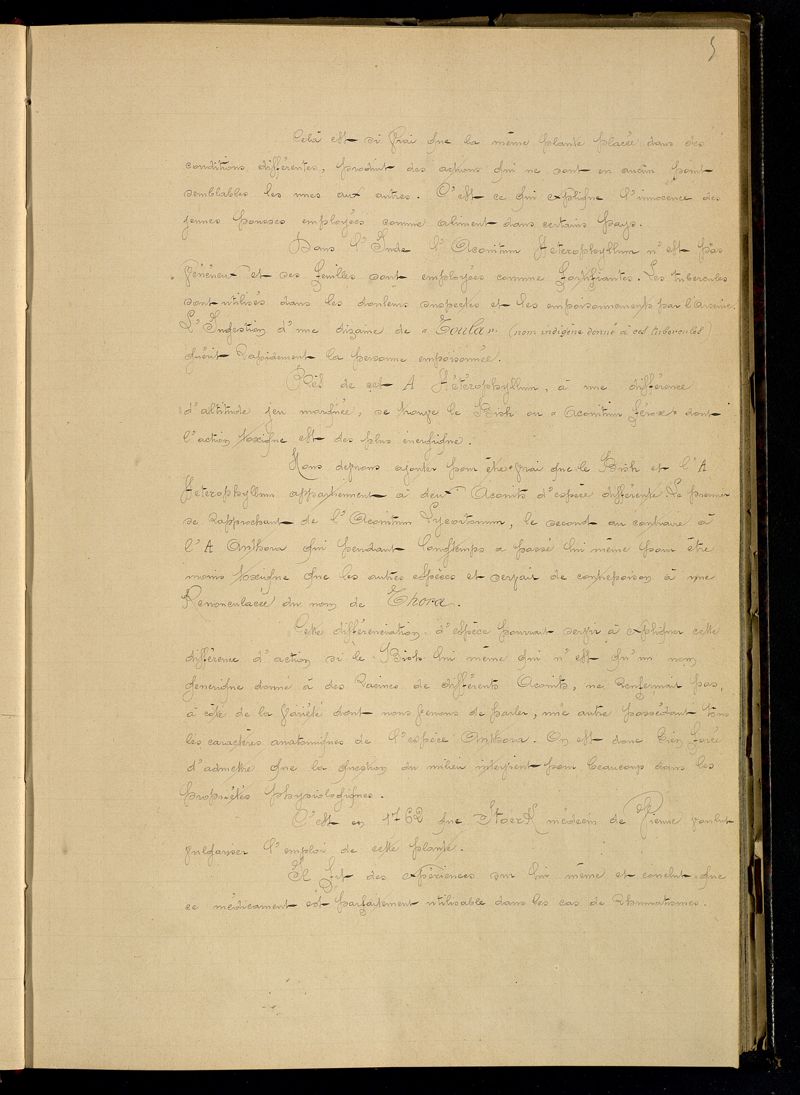 5
Celà est si vrai que la même plante placée dans des
conditions différentes, produit des actions qui ne sont en aucun point
semblables les unes aux autres. C'est ce qui explique l'innocence des
jeunes pousses employées comme aliment dans certains pays.
Dans l'Inde l'Aconitum Heterophyllum n'est pas
vénéneux et ses feuilles sont employées comme fortifiantes. Les tubercules
sont utilisés dans les douleurs suspectes et les empoisonnements par l'arsenic.
L'Ingestion d'une dizaine de « Toula » (nom indigène donné à ces tubercules)
guérit rapidement la personne empoisonnée.
Près de cet A Hétérophyllum, à une différence
d'altitude peu marquée, se trouve le Bish ou « Aconitum férox » dont
l'action toxique est des plus énergique.
Nous devons ajouter pour être vrai que le Bish et l'A
Heterophyllum appartiennent à deux Aconits d'espèce différente. Le premier
se rapprochant de l'Aconitum Lycoctonum, le second au contraire à
l'A Anthora qui pendant longtemps a passé lui même pour être
moins toxique que les autres espèces et servait de contrepoison à une
Renonculacée du nom de Thora.
Cette différenciation d'espèce pourrait servir à expliquer cette
différence d'action si le Bish lui même qui n'est qu'un nom
générique donné à des racines de différents Aconits, ne renfermait pas,
à côté de la variété dont nous venons de parler, une autre possédant tous
les caractères anatomiques de l'espèce Anthora. On est donc bien forcé
d'admettre que la question du milieu intervient pour beaucoup dans les
propriétés physiologiques.
C'est en 1762 que Stoerk médecin de Vienne voulut
vulgariser l'emploi de cette plante.
Il fit des expériences sur lui même et conclut que
ce médicament est parfaitement utilisable dans les cas de Rhumatismes.